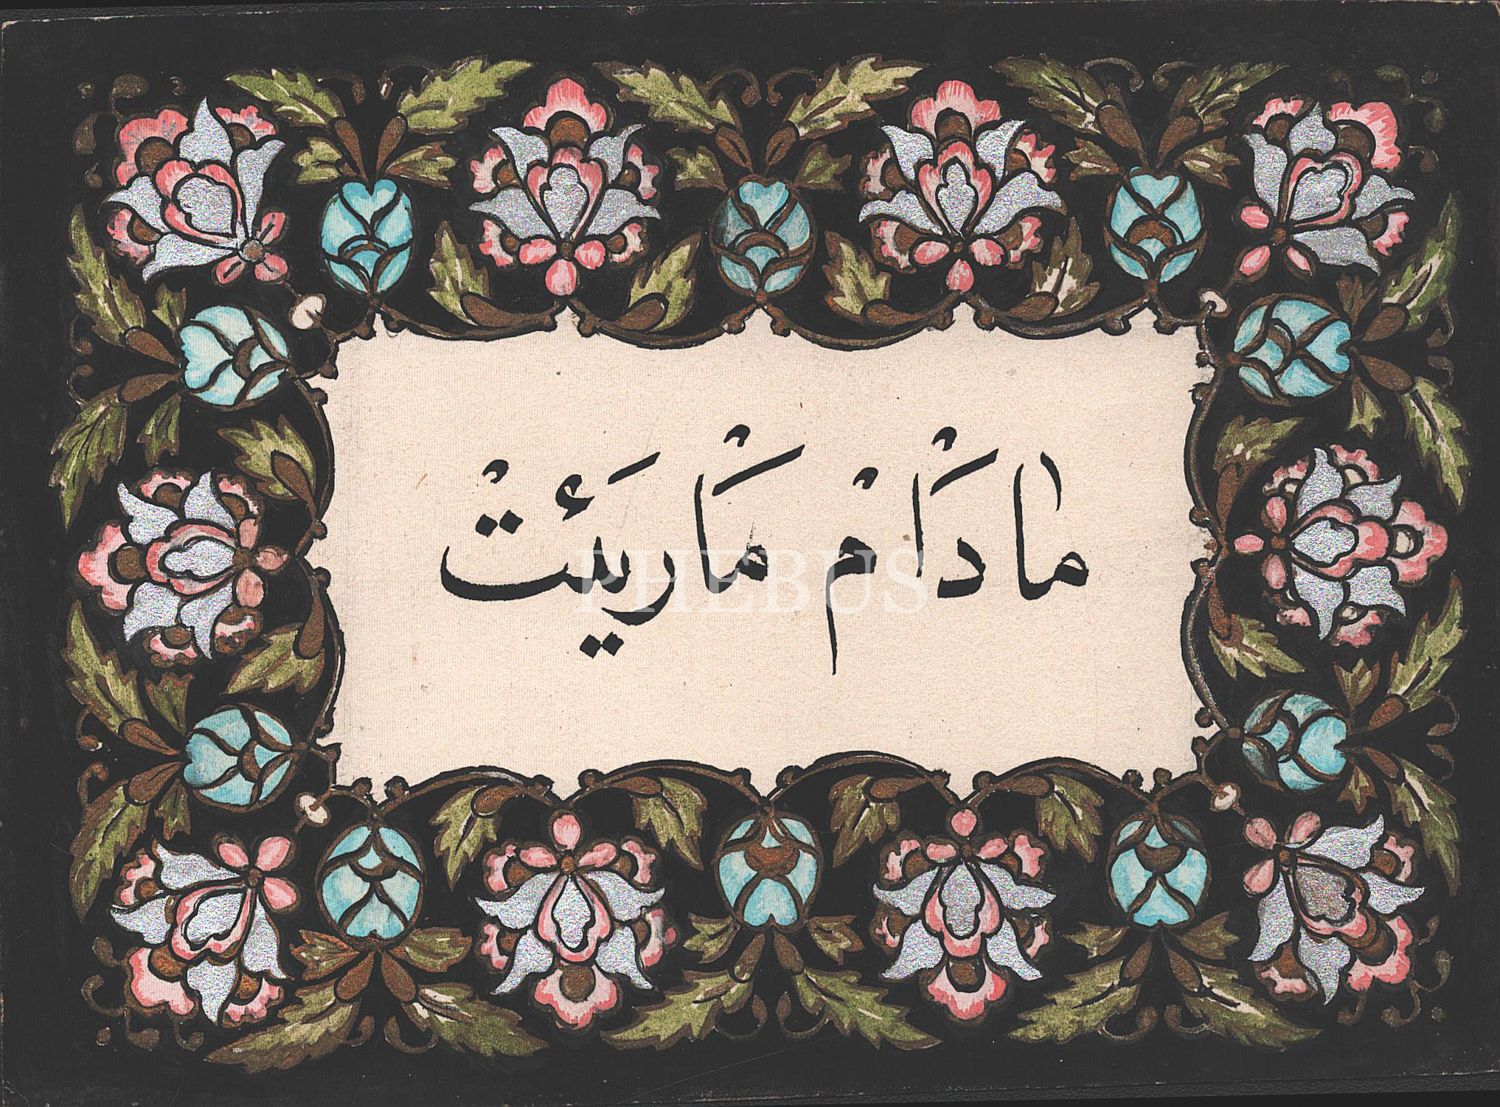 مٰادَاْمْ مَاْريَئتْ
PHEBUS